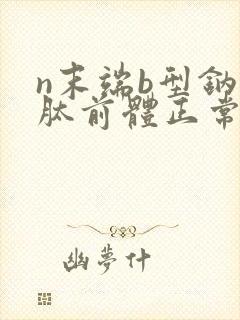 n末端b型鈉
肽前體正常
幽夢什